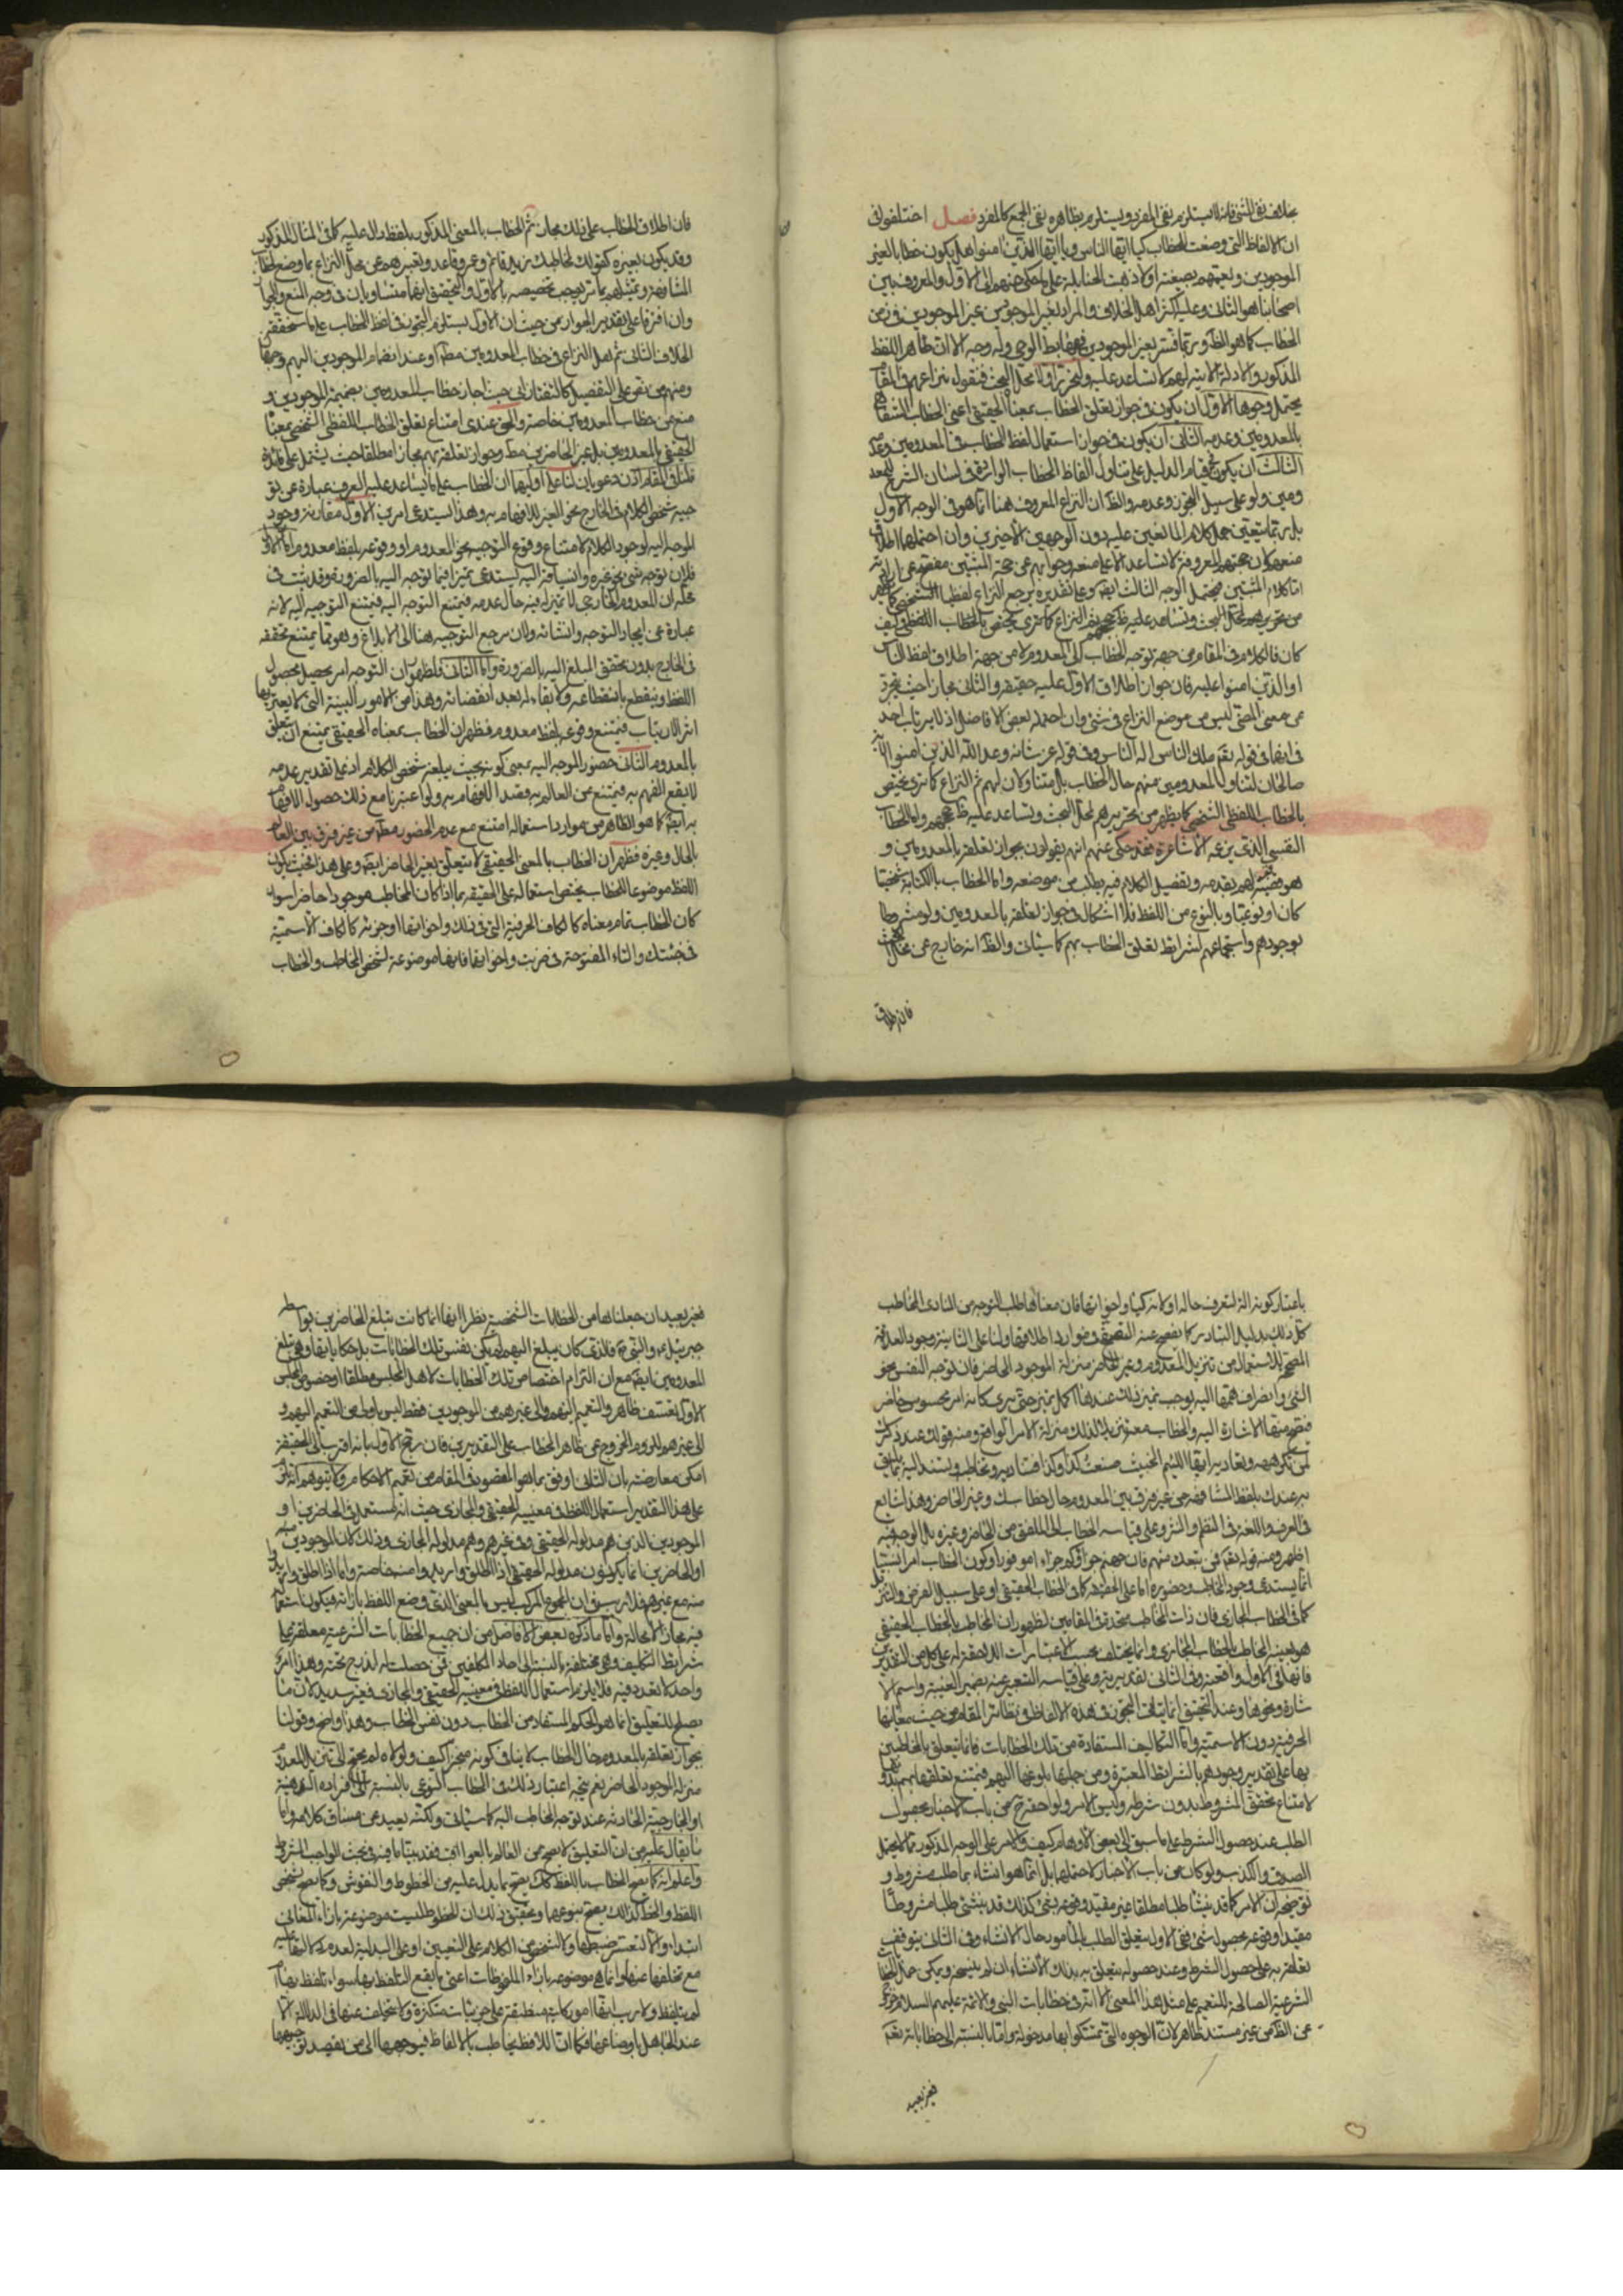 بخلاف نفى المثنى فانه لا يستلزم نفى المفرد ويستلزم بظاهره نفى الجمع كالمفرد فصل اختلفوا فى
ان الالفاظ التى وضعت للخطاب كيا ايها الناس ويا ايها الذين امنوا هل يكون خطابا لغير
الموجودين ويعمهم بصيغته اولا ذهبت الحنابلة على ما حكى عنهم الى الاول والمعروف بين
اصحابنا هو الثانى وعليه اكثر اهل الخلاف والمراد بغير الموجودين غير الموجودين فى زمن
الخطاب كما هو الظ وربما فسر بغير الموجودين فى مهابط الوحى وله وجه الا ان ظاهر اللفظ
المذكور والادلة الاتية لهم لا تساعد عليه ولنحرر اولا محل البحث فنقول نزاعهم فى المقام
يحتمل وجوها الاول ان يكون فى جواز تعلق الخطاب بمعناه الحقيقى اعنى الخطاب الشفاهى
بالمعدومين وعدمه الثانى ان يكون فى جواز استعمال لفظ الخطاب فى المعدومين وعدمه
الثالث ان يكون فى قيام الدليل على تناول الفاظ الخطاب الواردة فى لسان الشرع للمعد
ومين ولو على سبيل التجوز وعدمه والظ ان النزاع المعروف هنا انما هو فى الوجه الاول
بل ربما يتعين حمل كلام المانعين عليه دون الوجهين الاخيرين وان احتملهما اطلاق
منعهم لان حجتهم المعروفة لا تساعد الا على منعه وجوابهم عن حجة المثبتين مفصح عن ارادته
اما كلام المثبتين فيحتمل الوجه الثالث ايضا وعلى تقديره يرجع النزاع لفظيا
من تحريرهم لمحل البحث وتساعد عليه ظ حججهم ثم النزاع كما ترى يختص بالخطاب اللفظى وكيف
كان فالكلام فى المقام من جهة توجه الخطاب الى المعدوم لا من جهة اطلاق لفظ الناس
او الذين امنوا عليه فان جواز اطلاق الاول عليه حقيقة والثانى مجازا حيث يتجرد
عن معنى المضى ليس من موضع النزاع فى شئ وان احتمله بعض الافاضل اذ لا يرتاب احد
فى انهما فى قوله تعالى ملك الناس اله الناس وفى قوله عز شانه وعد الله الذين امنوا الاية
صالحان لتناول المعدومين منهم حال الخطاب بل متناولان لهم ثم النزاع كما ترى يختص
بالخطاب اللفظى الشخصى كما يظهر من تحريرهم لمحل البحث وتساعد عليه ظ حججهم واما الخطاب
النفسى الذى يزعمه الاشاعرة فقد حكى عنهم انهم يقولون بجواز تعلقه بالمعدومين و
هو مبنى لهم بقدمه وتفصيل الكلام فيه يطلب من موضعه واما الخطاب بالكتابة شخصيا
كان او نوعيا وبالنوع من اللفظ فلا اشكال فى جواز تعلقه بالمعدومين ولو مشروطا
بوجودهم واستجماعهم لشرايط تعلق الخطاب بهم كما سياتى والظ انه خارج عن محل البحث
فان اطلاق
فان اطلاق الخطاب على ذلك مجاز ثم الخطاب بالمعنى المذكور بلفظ دال عليه كما فى المثال المذكور
وقد يكون بغيره كقولك لمخاطبك زيد قائم وعمرو قاعد وتعبيرهم عن محل النزاع بما وضع لخطاب
المشافهة وتمثيلهم بما مر يوجب تخصيصه بالاول والتحقيق انهما متساويان فى وجه المنع والجواز
وان افترقا على تقدير الجواز من حيث ان الاول يستلزم التجوز فى لفظ الخطاب على ما سنحققه
الخلاف الثانى ثم هل النزاع فى خطاب المعدومين مطلقا او عند انضمام الموجودين اليهم وجهان
ومنهم من نص على التفصيل كالتفتازانى حيث اجاز خطاب المعدومين بضميمة الموجودين و
منع من خطاب المعدومين خاصة والحق عندى امتناع تعلق الخطاب اللفظى الشخصى بمعناه
الحقيقى بالمعدومين بل بغير الحاضرين مطلقا وجواز تعلقه بهم مجازا مطلقا حيث يشتمل على فائدة
فلنا فى المقام اذن دعويان لنا على اوليهما ان الخطاب على ما يساعد عليه العرف عبارة عن تو
جيه شخص الكلام فى الخارج نحو الغير للافهام به وهذا يستدعى امرين الاول مقارنة وجود
الموجه اليه لوجود الكلام لامتناع وقوع التوجيه نحو المعدوم او وقوعه بلفظ معدوم اما الاول
فلان توجه شئ نحو غيره وانسياقه اليه يستدعى تميزا فيما توجه اليه بالضرورة وقد ثبت فى
محله ان المعدوم الخارجى لا تميز له فيه حال عدمه فيمتنع التوجه اليه فيمتنع التوجيه اليه لانه
عبارة عن ايجاد التوجه وانشائه ولان مرجع التوجيه هنا الى الابلاغ وهو مما يمتنع تحققه
فى الخارج بدون تحقق المبلغ اليه بالضرورة واما الثانى فلظهور ان التوجه امر يحصل بحصول
اللفظ وينقطع بانقطاعه ولا بقاء له بعد انقضائه وهذا من الامور البينة التى لا يعتريها
اثر الارتياب فيمتنع وقوعه بلفظ معدوم فظهر ان الخطاب بمعناه الحقيقى يمتنع ان يتعلق
بالمعدوم الثانى حضور الموجه اليه بمعنى كونه بحيث يبلغه شخص الكلام اذ على تقدير عدمه
لا يقع الفهم به فيمتنع من العالم به قصد الافهام به ولو اعتبرنا مع ذلك حصول الافهام
به ايضا كما هو الظاهر من موارد استعماله امتنع مع عدم الحضور مطلقا من غير فرق بين العالم
بالحال وغيره فظهر ان الخطاب بالمعنى الحقيقى لا يتعلق بغير الحاضر ايضا وعلى هذا فحيث يكون
اللفظ موضوعا للخطاب يختص استعماله على الحقيقة بما اذا كان المخاطب موجودا حاضرا سواء
كان الخطاب تمام معناه كالكاف الحرفية التى فى ذلك واخواتها او جزئه كالكاف الاسمية
فى جئتك والتاء المفتوحة فى ضربت واخواتها فانها موضوعة لشخص المخاطب والخطاب
باعتبار كونه الة لتعرف حاله او لازمه كيا واخواتها فان معناها طلب التوجه من المنادى المخاطب
كل ذلك بدليل التبادر كما يفصح عنه التصفح فى موارد اطلاقها ولنا على الثانية وجود العلاقة
المصححة للاستعمال من تنزيل المعدوم وغير الحاضر منزلة الموجود الحاضر فان توجه النفس نحو
الشئ وانصراف همتها اليه يوجب تميز ذلك عندها اكمل تميز حتى يرى كانه امر محسوس حاضر
فيصح منها الاشارة اليه والخطاب معه تنزيلا لذلك منزلة الامر الواقع ومنه قولك عند ذكرك
لمن تكرهه وتعاديه ايها اللئيم الخبيث صنعت كذا وكذا فتناديه وتخاطبه وتسند اليه ما يليق
به عندك بلفظ المشافهة من غير فرق بين المعدوم حال خطابك وغير الحاضر وهذا شايع
فى العرف واللغة فى النظم والنثر وعلى قياسه الخطاب الى الملفق من الحاضر وغيره بل الوجه فيه
اظهر ومنه قوله تعالى فمن تبعك منهم فان جهنم جزاؤكم جزاء موفورا وكون الخطاب امرا نسبيا
انما يستدعى وجود المخاطب وحضوره اما على الحقيقة كما فى الخطاب الحقيقى او على سبيل الفرض والتنزيل
كما فى الخطاب المجازى فان ذات المخاطب متحد فى المقامين لظهور ان المخاطب بالخطاب الحقيقى
هو بعينه المخاطب بالخطاب المجازى وانما يختلف بحسب الاعتبارات اللاحقة له على كل من التقديرين
فانها فى الاول واقعية وفى الثانى تقديرية وعلى قياسه التعبير عنه بضمير الغيبة واسم الا
شارة ونحوها وعند التحقيق انما ياتى التجوز فى هذه الالفاظ ونظائر المقام من حيث معانيها
الحرفية دون الاسمية واما التكاليف المستفادة من تلك الخطابات فانما يتعلق بالمخاطبين
بها على تقدير وجودهم بالشرايط المعتبرة ومن جملتها بلوغها اليهم فيمتنع تعلقها بهم بدونها
لامتناع تحقق المشروط بدون شرطه وليس الامر ولواحقه ح من باب الاخبار بحصول
الطلب عند حصول الشرط على ما سبق الى بعض الاوهام كيف والامر على الوجه المذكور مما لا يحتمل
الصدق والكذب ولو كان من باب الاخبار لاحتملها بل انما هو انشاء بما طلب مشروط و
توضيحه ان الامر كما قد ينشا طلبا مطلقا غير مقيد وقوعه بشئ كذلك قد ينشئ طلبا مشروطا
مقيدا وقوعه بحصول شئ ففى الاول يتعلق الطلب بالمامور حال الانشاء وفى الثانى يتوقف
تعلقه به على حصول الشرط وعند حصوله يتعلق به بذلك الانشاء ان لم ينسخه ويمكن حمل الخطابات
الشرعية الصالحة للتعميم على مثل هذا المعنى الا انه فى خطابات النبى والائمة عليهم السلام خروج
عن الظ من غير مستند ظاهر لان الوجوه التى تمسكوا بها مدخولة واما بالنسبة الى خطاباته تعالى
فغير بعيد
فغير بعيد ان جعلناها من الخطابات الشخصية نظرا الى انها انما كانت تبلغ الحاضرين بواسطة
جبرئيل والنبى فالذى كان يبلغ اليهم لم يكن نفس تلك الخطابات بل حكاياتها وهى تبلغ
المعدومين ايضا مع ان التزام اختصاص تلك الخطابات لاهل المجلس مطلقا او خصوص المجلس
الاول تعسف ظاهر والتعميم اليهم والى غيرهم من الموجودين فقط ليس باولى من التعميم اليهم و
الى غيرهم للزوم الخروج عن ظاهر الخطاب على التقديرين فان رجح الاول بانه اقرب الى الحقيقة
امكن معارضته بان الثانى اوفق بما هو المقصود فى المقام من تعميم الاحكام ولا يتوهم انه يلزم
على هذا التقدير استعمال اللفظ فى معنييه الحقيقى والمجازى حيث انه مستعمل فى الحاضرين او
الموجودين الذين هم مدلوله الحقيقى وفى غيرهم وهم مدلوله المجازى وذلك لان الموجودين
او الحاضرين انما يكونون مدلوله الحقيقى اذا اطلق واريدوا منه خاصة واما اذا اطلق واريدوا
منه مع غيرهم فلا لما سبق ان المجموع المركب ليس بالمعنى الذى وضع اللفظ بازائه فيكون استعماله
فيه مجازا لا محالة واما ما ذكره بعض الافاضل من ان جميع الخطابات الشرعية معلقة على
شرايط التكليف وهى مختلفة بالنسبة الى احاد المكلفين فمن حصلت له اندرج تحته وهذا امر
واحد لا تعدد فيه فلا يلزم استعمال اللفظ فى معنييه الحقيقى والمجازى فغير سديد لان ما
يصلح للتعليق انما هو الحكم المستفاد من الخطاب دون نفس الخطاب وهذا واضح وقولنا
بجواز تعلقه بالمعدوم حال الخطاب لا ينافى كونه منجزا كيف ولولاه لم يحتج الى تنزيل المعدوم
منزلة الموجود الحاضر نعم يتجه اعتبار ذلك فى الخطاب النوعى بالنسبة الى افراده الذهنية
او الخارجية الحادثة عند توجه المخاطب اليه كما سياتى ولكنه بعيد عن مساق كلامه واما
ما يقال عليه من ان التعليق لا يصح من العالم بالعواقب فقد بينا ما فيه فى بحث الواجب المشروط
واعلم انه كما يصح الخطاب باللفظ كذلك يصح بما يدل عليه من الخطوط والنقوش وكما يصح بشخص
اللفظ والخط كذلك يصح بنوعهما وتحقيق ذلك ان الخطوط ليست موضوعة بازاء المعانى
ابتداء والا لتعسر ضبطها ولا لشخص من الكلام على التعيين او على البدلية لعدم
مع تخلفها عنها وانما هى موضوعة بازاء الملفوظات اعنى ما يقع التلفظ بها سواء تلفظ بها ام
لم يتلفظ ولا ريب انها امور كلية منطبقة على جزئيات متكثرة ولا يتخلف عنها فى الدلالة الا
عند الجاهل باوضاعها فكما ان اللافظ يخاطب بالالفاظ فيوجهها الى من يقصد توجيهها